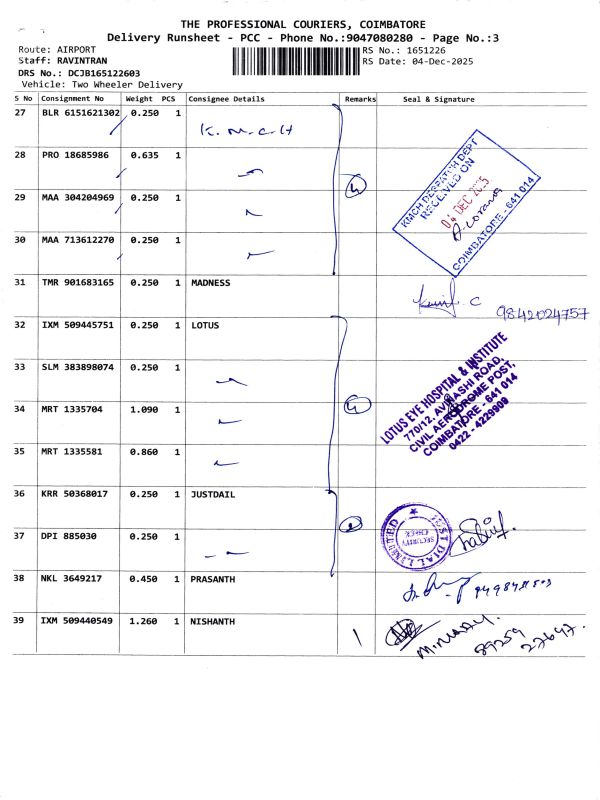 THE PROFESSIONAL COURIERS, COIMBATORE
Delivery Runsheet - PCC - Phone No.:9047080280 - Page No.:3
Route: AIRPORT
RS No.: 1651226
Staff: RAVINTRAN
RS Date: 04-Dec-2025
DRS No.: DCJB165122603
Vehicle: Two Wheeler Delivery
S No Consignment No Weight PCS Consignee Details Remarks Seal & Signature
27 BLR 6151621302 0.250 1 K.M.C.H
28 PRO 18685986 0.635 1
29 MAA 304204969 0.250 1
30 MAA 713612270 0.250 1
KMCH DESPATCH DEPT
RECEIVED ON
04 DEC 2025
COIMBATORE - 641 014
31 TMR 901683165 0.250 1 MADNESS
9842024757
32 IXM 509445751 0.250 1 LOTUS
33 SLM 383898074 0.250 1
34 MRT 1335704 1.090 1
35 MRT 1335581 0.860 1
LOTUS EYE HOSPITAL & INSTITUTE
770/12, AVINASHI ROAD,
CIVIL AERODROME POST,
COIMBATORE - 641 014
0422 - 4229909
36 KRR 50368017 0.250 1 JUSTDAIL
37 DPI 885030 0.250 1
JUST DIAL LIMITED
SECURITY
38 NKL 3649217 0.450 1 PRASANTH
39 IXM 509440549 1.260 1 NISHANTH
89259
27647